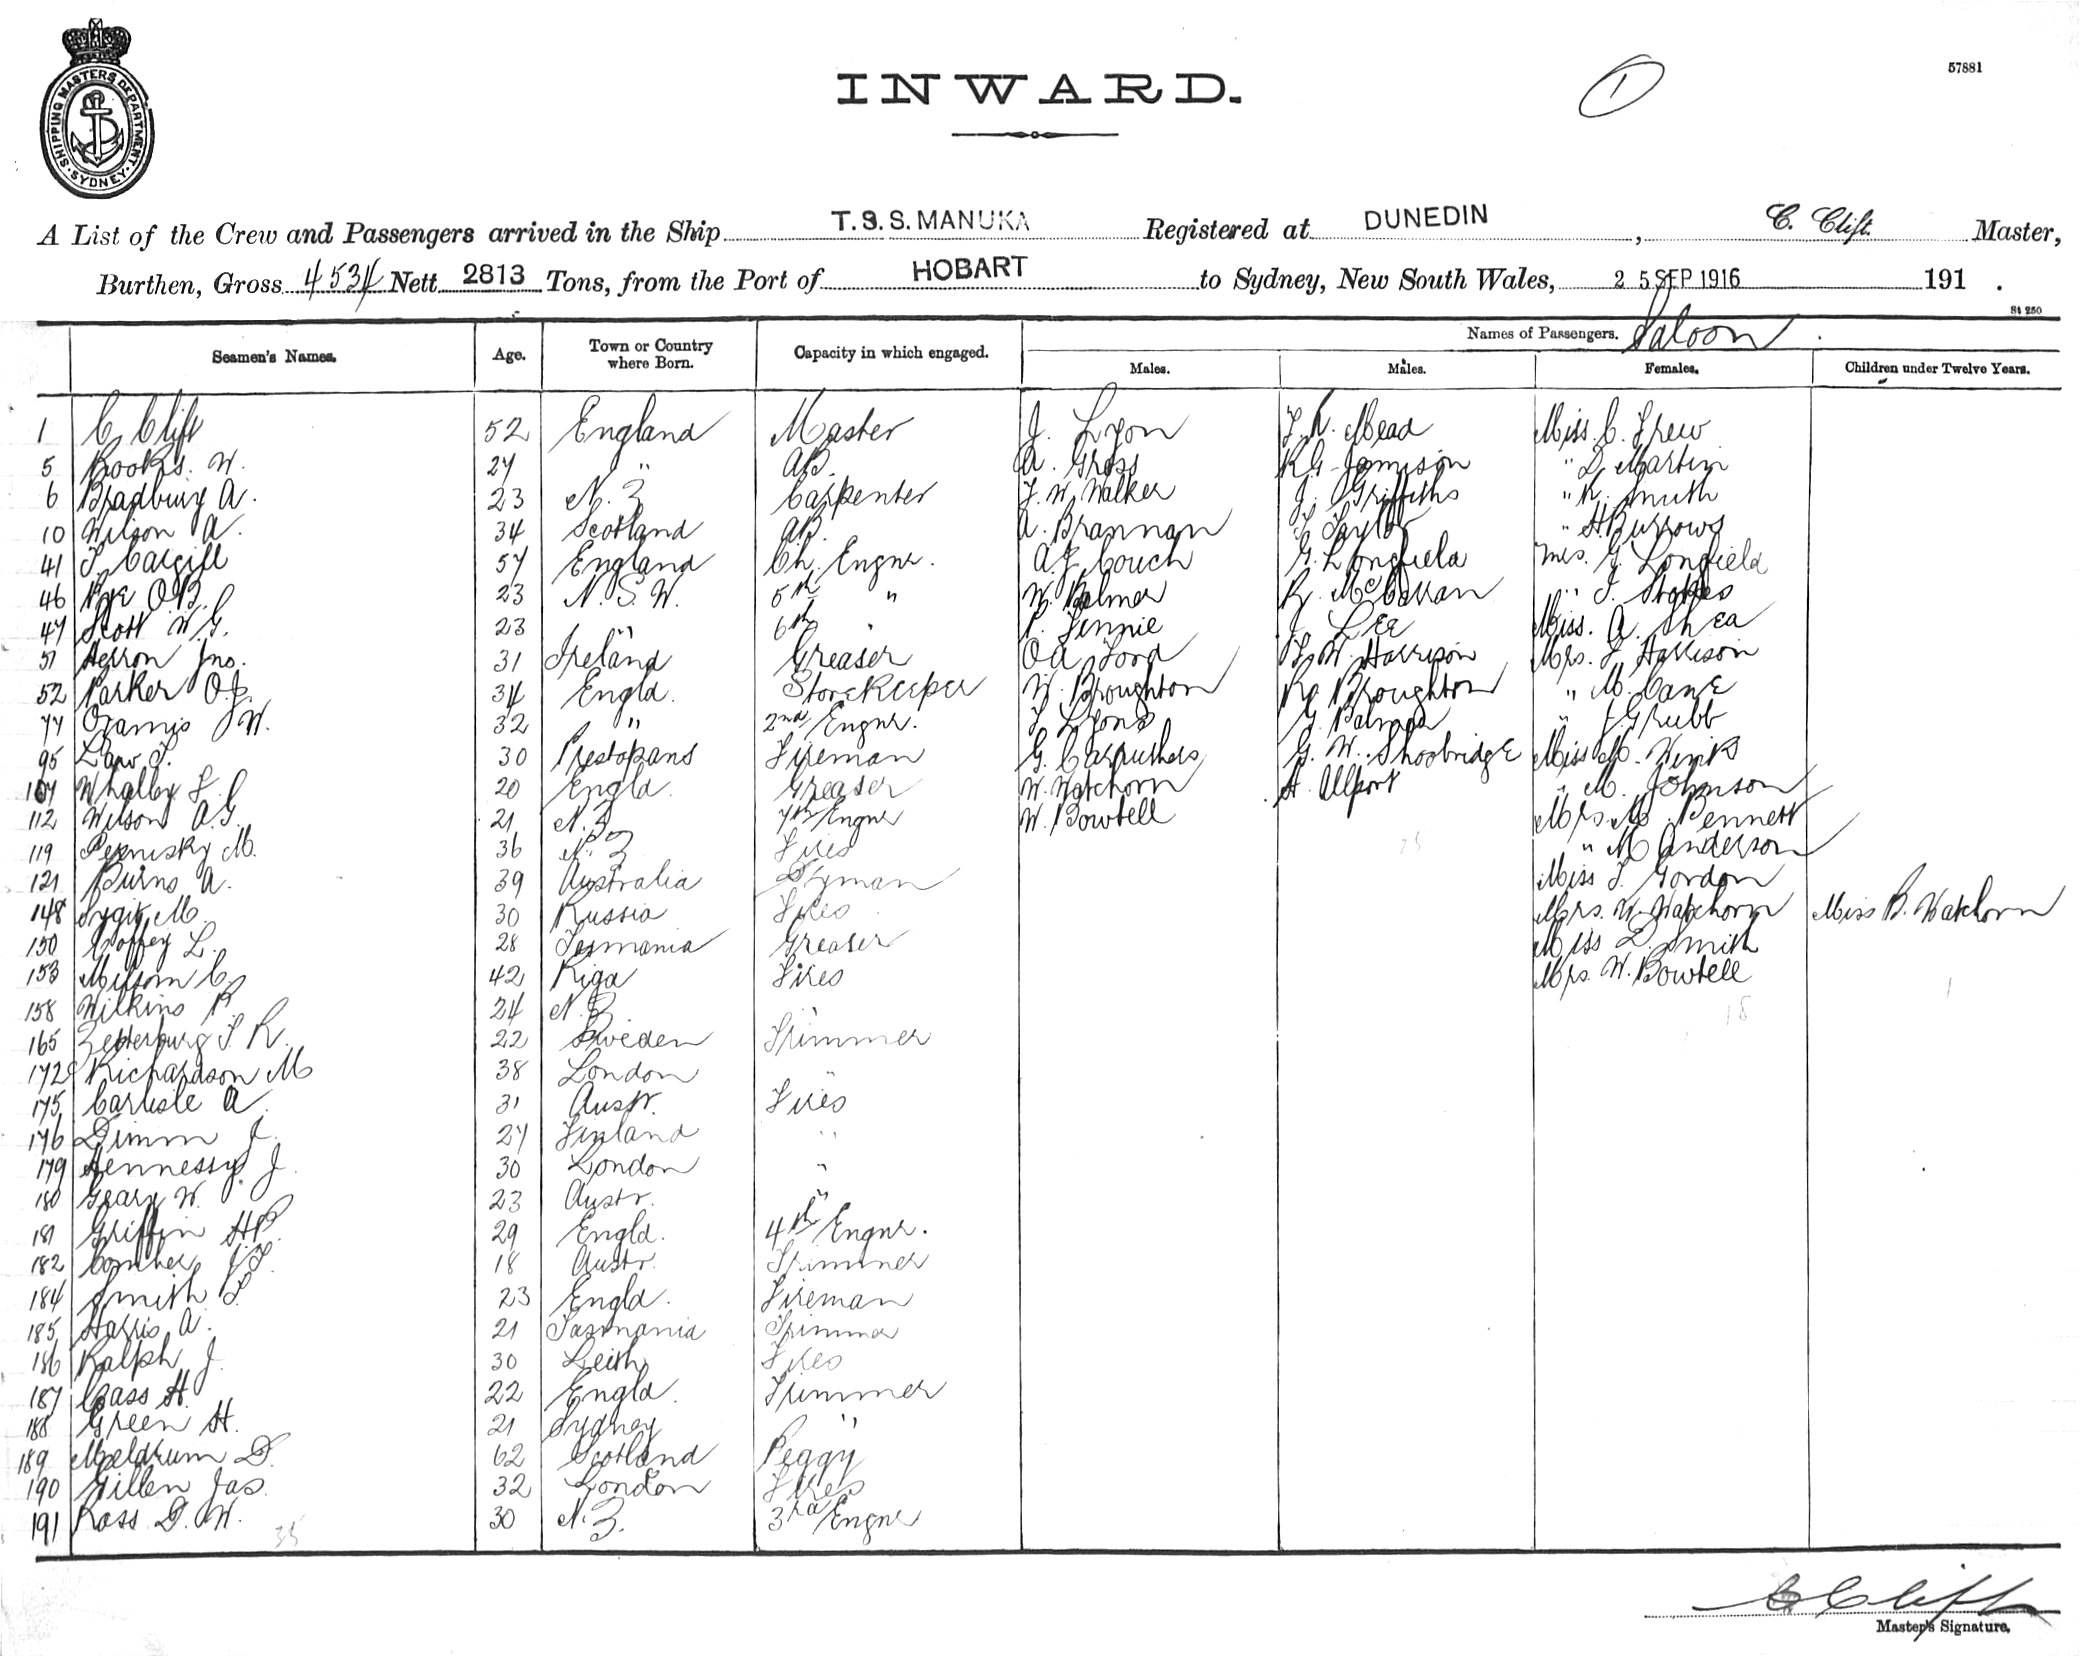 SHIPPING MASTERS DEPARTMENT
SYDNEY
INWARD.
1
57881
A List of the Crew and Passengers arrived in the Ship T.S.S. MANUKA Registered at DUNEDIN, C. Clift Master,
Burthen, Gross 4534 Nett 2813 Tons, from the Port of HOBART to Sydney, New South Wales, 25 SEP 1916 191 .
St 250
Names of Passengers. Saloon
Seamen's Names. Age. Town or Country where Born. Capacity in which engaged. Males. Males. Females. Children under Twelve Years.
1 C Clift 52 England Master J. Lyon Mead Miss. C. Frew
5 W. 27 " AB. A. Gross R G Jamison " D. Martin
6 Bradbury A. 23 N. Z Carpenter F. W. Walker J. Griffiths " R. Smith
10 Wilson A. 34 Scotland AB. A. Brannan F Taylor " A Burrows
41 T Cargill 57 England Ch. Engnr. A. J. Couch G. Longfield Mrs. G Longfield
46 Pye O.B. 23 N. S. W. 5th " W. Palmer R. McCarran " J. Stokes
47 Scott W. G. 23 " 6th " P. Finnie J LEE Miss. A. Shea
51 Herron Jno. 31 Ireland Greaser Ford F. W. Harrison Mrs. F Harrison
52 Parker O.J. 34 Engld. Storekeeper W. Broughton Broughton " M. Cane
77 W. 32 " 2nd Engnr. Lyons G. Palmer " J Grubb
95 Law T. 30 Prestopans Fireman G. Carruthers G. W. Shoobridge Miss M. Winks
107 Whalley F. 20 Engld. Greaser W. Watchorn A. Allport " M. Johnson
112 Wilson A.G. 21 N. Z 7th Engnr W. Bowtell Mrs. M Bennett
119 M. 36 N. Z Fires " M Anderson
121 Burns A. 39 Australia Miss F. Gordon
148 M. 30 Russia Fires Mrs. W. Watchorn Miss B. Watchorn
150 L. 28 Tasmania Greaser Miss L. Smith
153 C. 42 Riga Fires Mrs. W. Bowtell
158 Wilkins P. 24 N. Z " 18 1
165 Zetterburg F. R. 22 Sweden Trimmer
172 Richardson M 38 London "
175 Carlisle A. 31 Austr. Fires
176 Dimm J. 27 Finland "
179 Hennessy J. 30 London "
180 Geary W. 23 Austr. "
181 Griffin H.P. 29 Engld. 4th Engnr.
182 18 Austr. Trimmer
184 Smith F. 23 Engld. Fireman
185 Harris A. 21 Tasmania Trimmer
186 Ralph J. 30 Leith Fires
187 Cass H. 22 Engld. Trimmer
188 Green H. 21 Sydney "
189 Meldrum D. 62 Scotland Peggy
190 Gillen Jas. 32 London Fires
191 Ross D. W. 30 N. Z. 3rd Engnr
35
C Clift
Master's Signature.